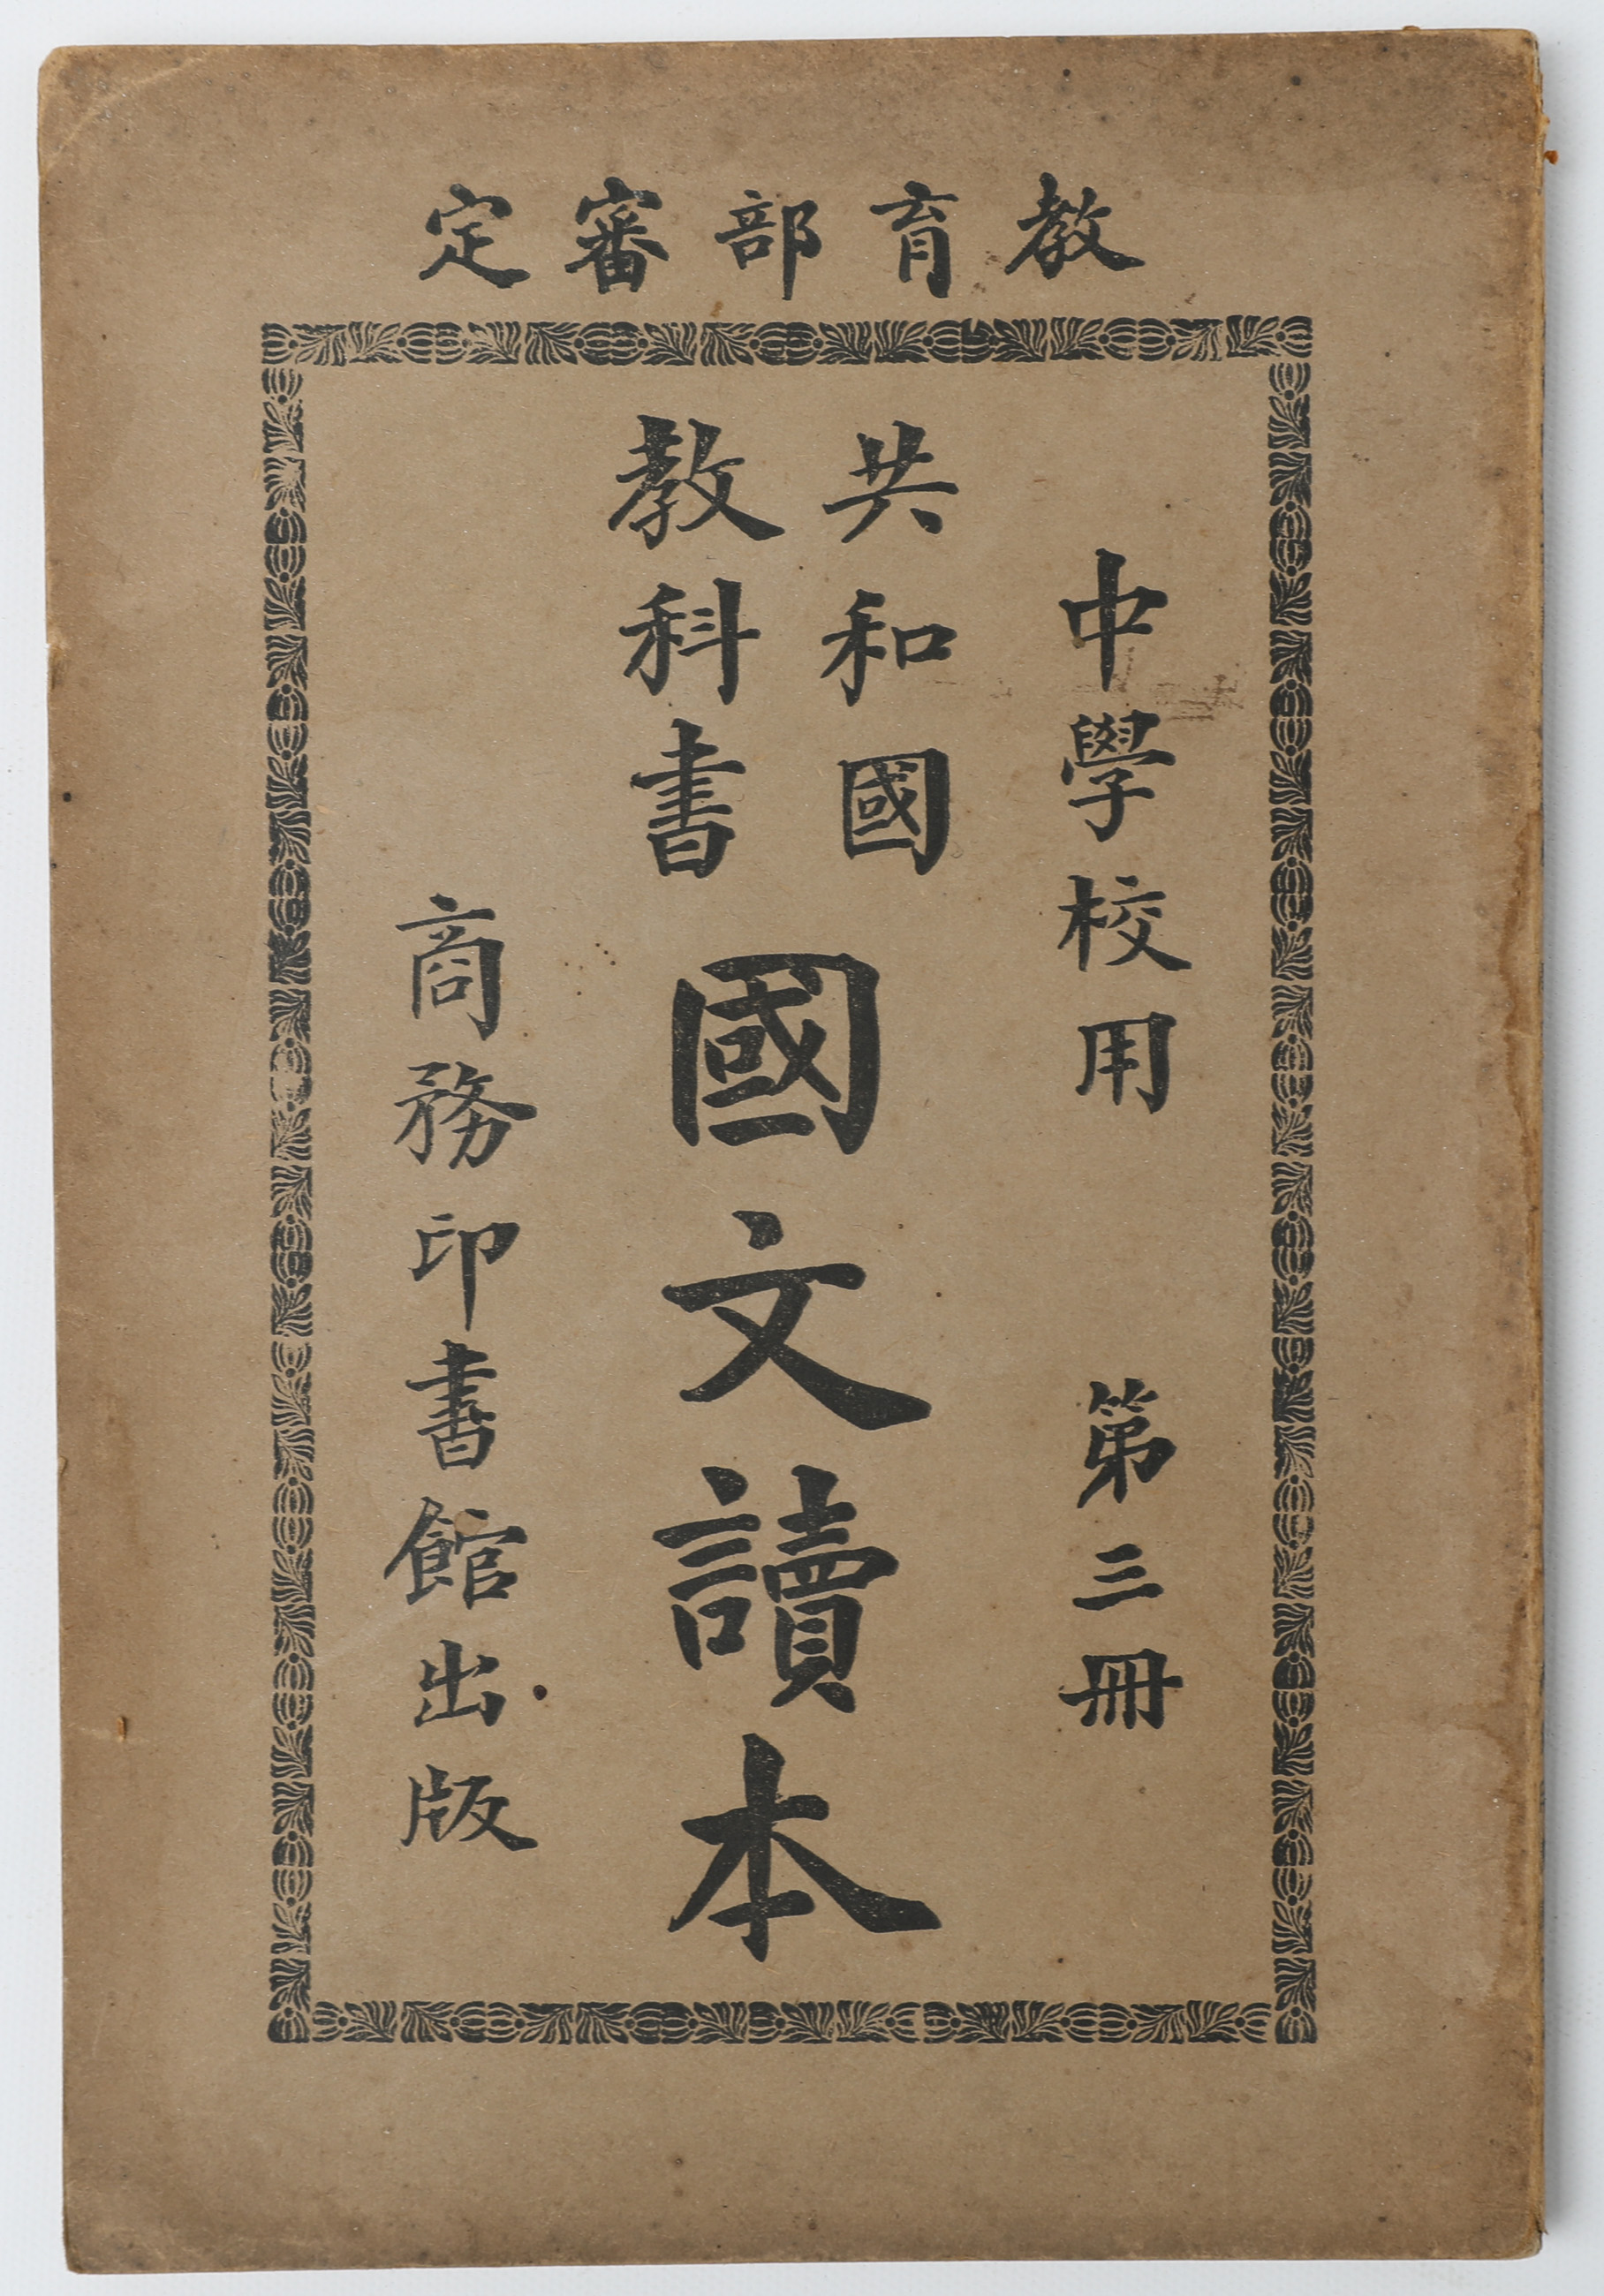 教育部審定
中學校用　第三冊
共和國
教科書
國文讀本
商務印書館出版